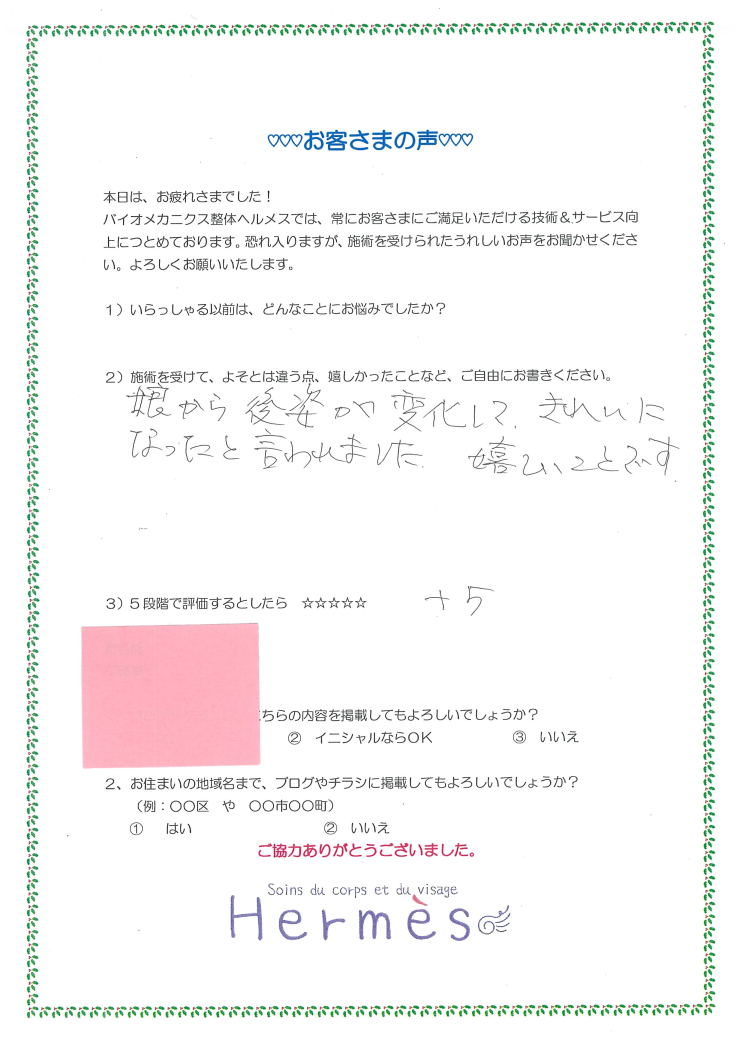 ♡♡♡お客さまの声♡♡♡
本日は、お疲れさまでした！
バイオメカニクス整体ヘルメスでは、常にお客さまにご満足いただける技術＆サービス向
上につとめております。恐れ入りますが、施術を受けられたうれしいお声をお聞かせくださ
い。よろしくお願いいたします。
１）いらっしゃる以前は、どんなことにお悩みでしたか？
２）施術を受けて、よそとは違う点、嬉しかったことなど、ご自由にお書きください。
娘から後姿が変化して、きれいに
なったと言われました. 嬉しいことです
３）５段階で評価するとしたら ☆☆☆☆☆ +5
ちらの内容を掲載してもよろしいでしょうか？
② イニシャルならＯＫ ③ いいえ
２、お住まいの地域名まで、ブログやチラシに掲載してもよろしいでしょうか？
（例：〇〇区 や 〇〇市〇〇町）
① はい ② いいえ
ご協力ありがとうございました。
Soins du corps et du visage
Hermès